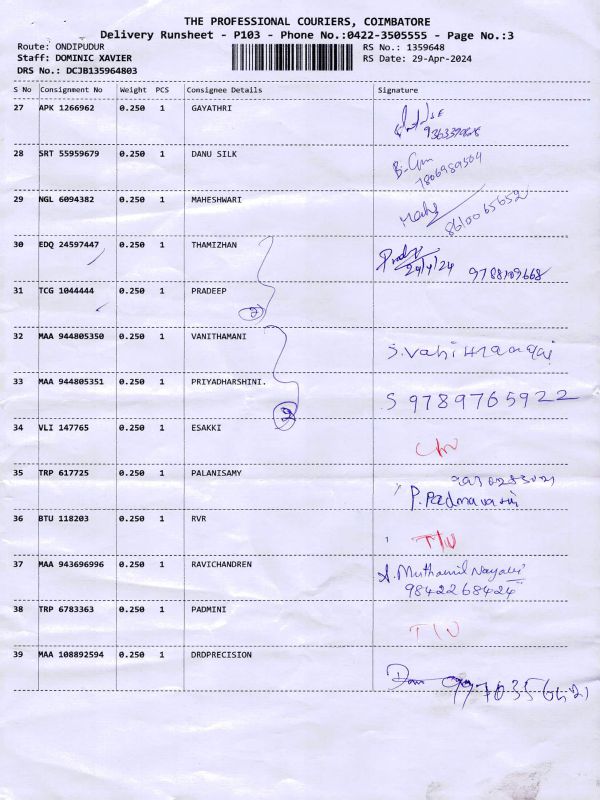 THE PROFESSIONAL COURIERS, COIMBATORE
Delivery Runsheet - P103 - Phone No.:0422-3505555 - Page No.:3
Route: ONDIPUDUR RS No.: 1359648
Staff: DOMINIC XAVIER RS Date: 29-Apr-2024
DRS No.: DCJB135964803
S No Consignment No Weight PCS Consignee Details Signature
27 APK 1266962 0.250 1 GAYATHRI
28 SRT 55959679 0.250 1 DANU SILK
7806989504
29 NGL 6094382 0.250 1 MAHESHWARI
8610065652
30 EDQ 24597447 0.250 1 THAMIZHAN
29/4/24 9788109668
31 TCG 1044444 0.250 1 PRADEEP
2
32 MAA 944805350 0.250 1 VANITHAMANI
33 MAA 944805351 0.250 1 PRIYADHARSHINI.
S 9789765922
2
34 VLI 147765 0.250 1 ESAKKI
35 TRP 617725 0.250 1 PALANISAMY
P. Padmavathi
36 BTU 118203 0.250 1 RVR
37 MAA 943696996 0.250 1 RAVICHANDREN
A. Muthamil Nayaki
9842268424
38 TRP 6783363 0.250 1 PADMINI
39 MAA 108892594 0.250 1 DRDPRECISION